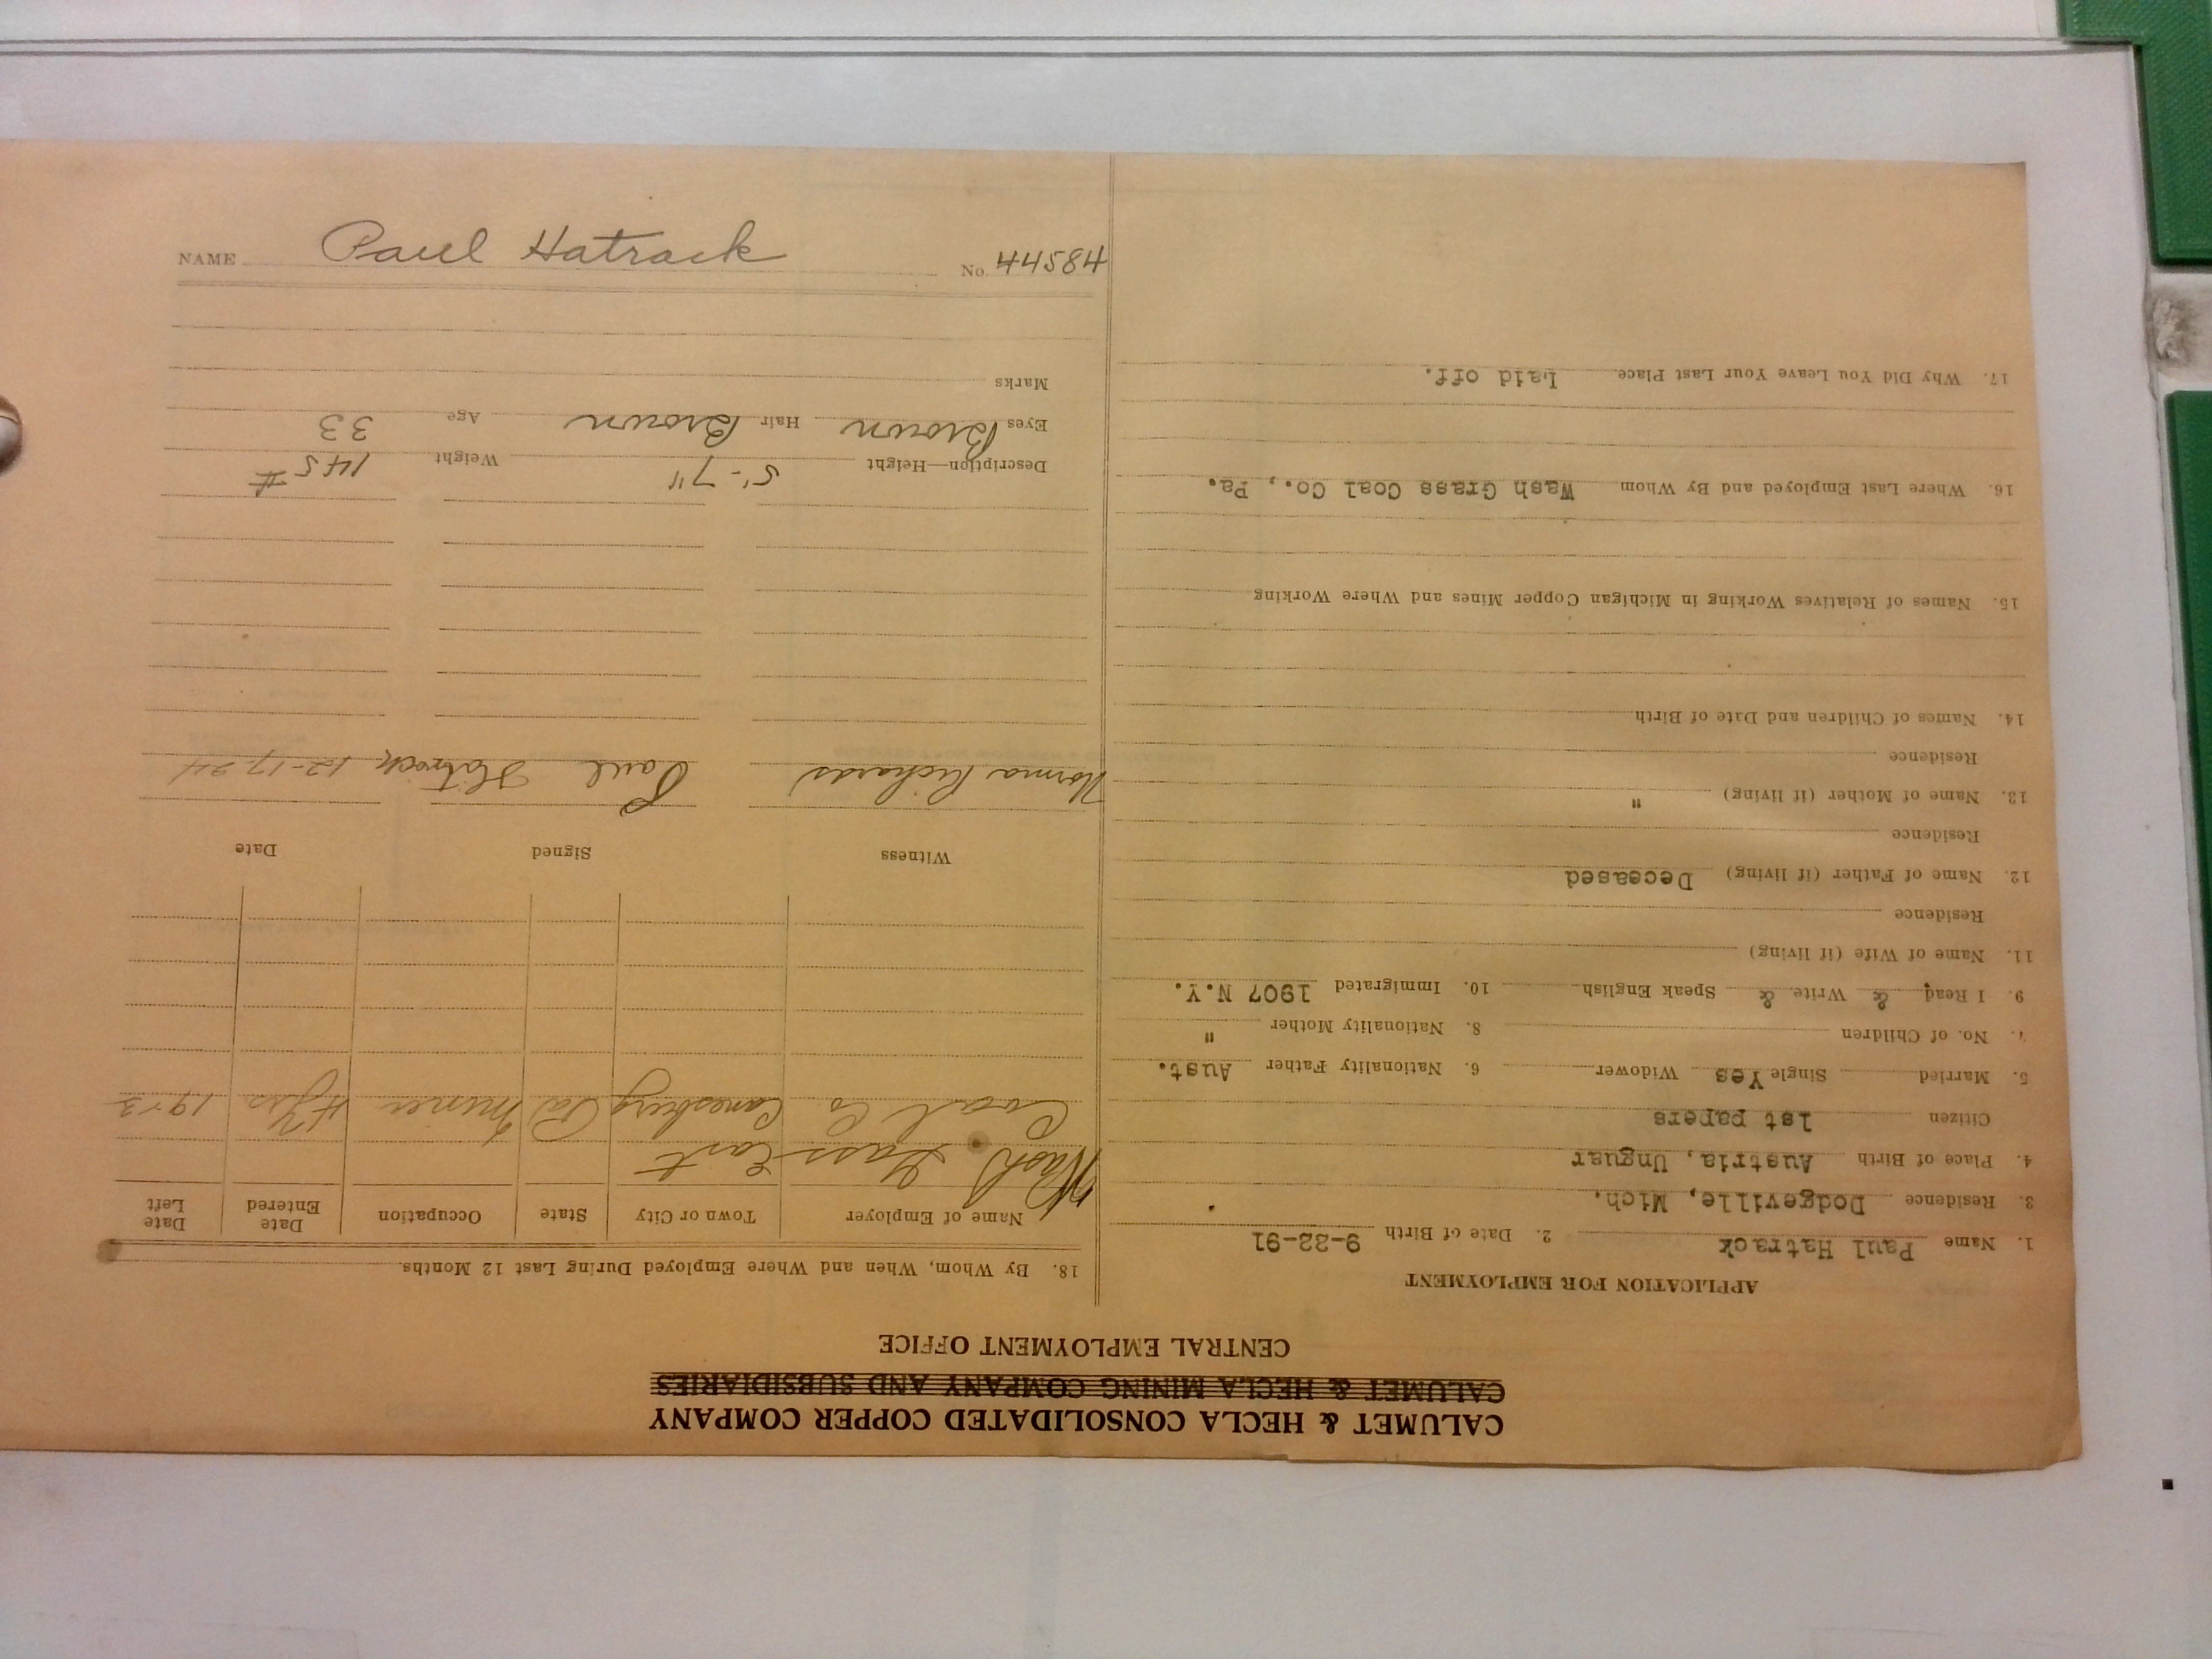 CALUMET & HECLA CONSOLIDATED COPPER COMPANY
CALUMET & HECLA MINING COMPANY AND SUBSIDIARIES
CENTRAL EMPLOYMENT OFFICE
APPLICATION FOR EMPLOYMENT
1. Name Paul Hatrack 2. Date of Birth 9-22-91
3. Residence Dodgeville, Mich.
4. Place of Birth Austria, Unguar
Citizen 1st papers
5. Married Single Yes Widower 6. Nationality Father Aust.
7. No. of Children 8. Nationality Mother "
9. I Read & Write & Speak English 10. Immigrated 1907 N.Y.
11. Name of Wife (if living)
Residence
12. Name of Father (if living) Deceased
Residence
13. Name of Mother (if living) "
Residence
14. Names of Children and Date of Birth
15. Names of Relatives Working in Michigan Copper Mines and Where Working
16. Where Last Employed and By Whom Wash Grass Coal Co., Pa.
17. Why Did You Leave Your Last Place Laid off.
18. By Whom, When and Where Employed During Last 12 Months
Name of Employer Town or City State Occupation Date Entered Date Left
Wash Gass East
Coal Co. Canesburg Pa Miner 4 yrs
Witness Signed Date
Norma Richards Paul Hatrock 12-17-24
Description—Height 5'-7" Weight 145#
Eyes Brown Hair Brown Age 33
Marks
NAME Paul Hatrack No. 44584